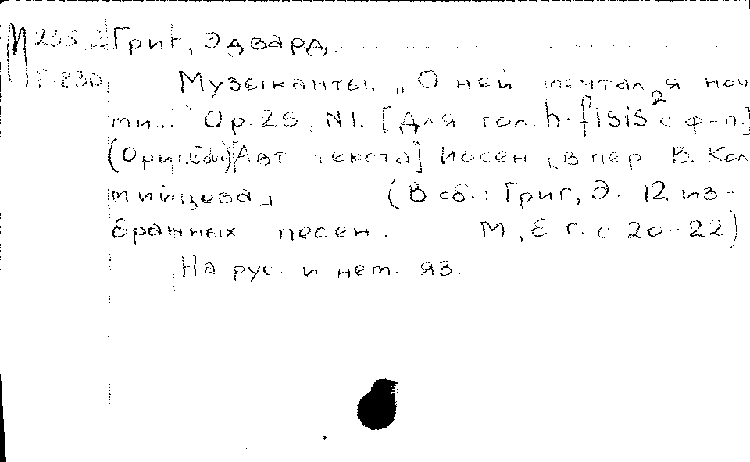 М 255.2 Григ, Эдвард.
Г-830 Музыканты. „О ней мечтал я ноч
ми..." Op. 25, N1. [Для гол. h-fisis² с ф-п.]
(Ориг. [Авт текста] Ибсен, в пер В. Кол
мийцева] (В сб.: Григ, Э. 12 из-
бранных песен. М, Б. г. с 20-22)
На рус. и нем. яз.